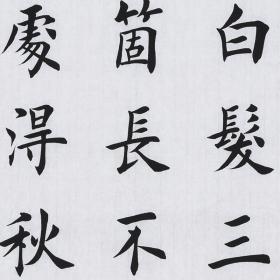 白髮三
箇長不
處淂秋